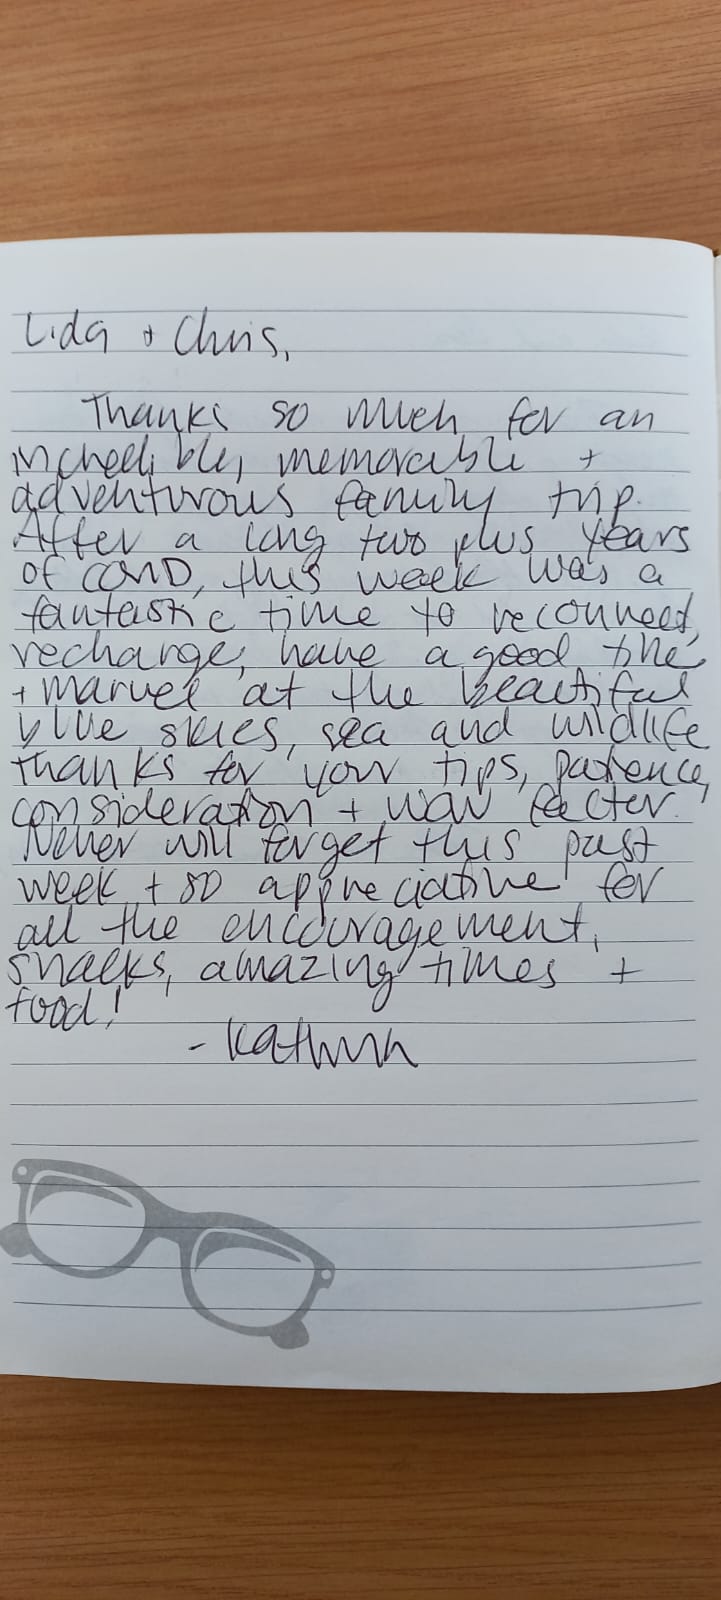 Lida + Chris,
Thanks so much for an
incredible, memorable +
adventurous family trip.
After a long two plus years
of COVID, this week was a
fantastic time to reconnect,
recharge, have a good time
+ marvel at the beautiful
blue skies, sea and wildlife
Thanks for your tips, patience,
consideration + wow factor.
Never will forget this past
week + so appreciative for
all the encouragement,
snacks, amazing times +
food!
- Kathryn